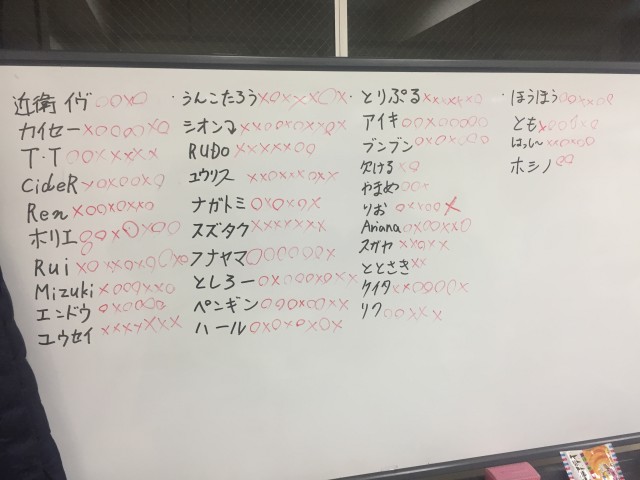 近衛 イヴ ○○×○
カイセー ×○○○×○
T・T ○○××××
CideR ×○×○○×○
Ren ×○○×○××○
ホリエ ○○×○×○○
Rui
Mizuki ×○○○××○
エンドウ ○×○○○○
ユウセイ ×××××××
うんこたろう ×○××××○×
シオン
RUDO ×××××○○
ユウリス ××○×××○××
ナガトミ ○×○×○×
スズタク ×××××××
フナヤマ ○○○○○○×
としろー ○×○○○×○××
ペンギン ○○○×○○××
ハール ○×○×○×○×
とりぷる ××××××○
アイキ ○○×○○○○○
ブンブン ○×○×○○○
欠ける ×○
やまめ ○○×
りお ○××○○×
Ariana ○×○○××○
スガヤ ××○××
ととさき ××
ケイタ ××○○○○×
リク ○○×××
ほうほう ○○××○○
とも ×○○×○
はっしー ××○×○○
ホシノ ○○